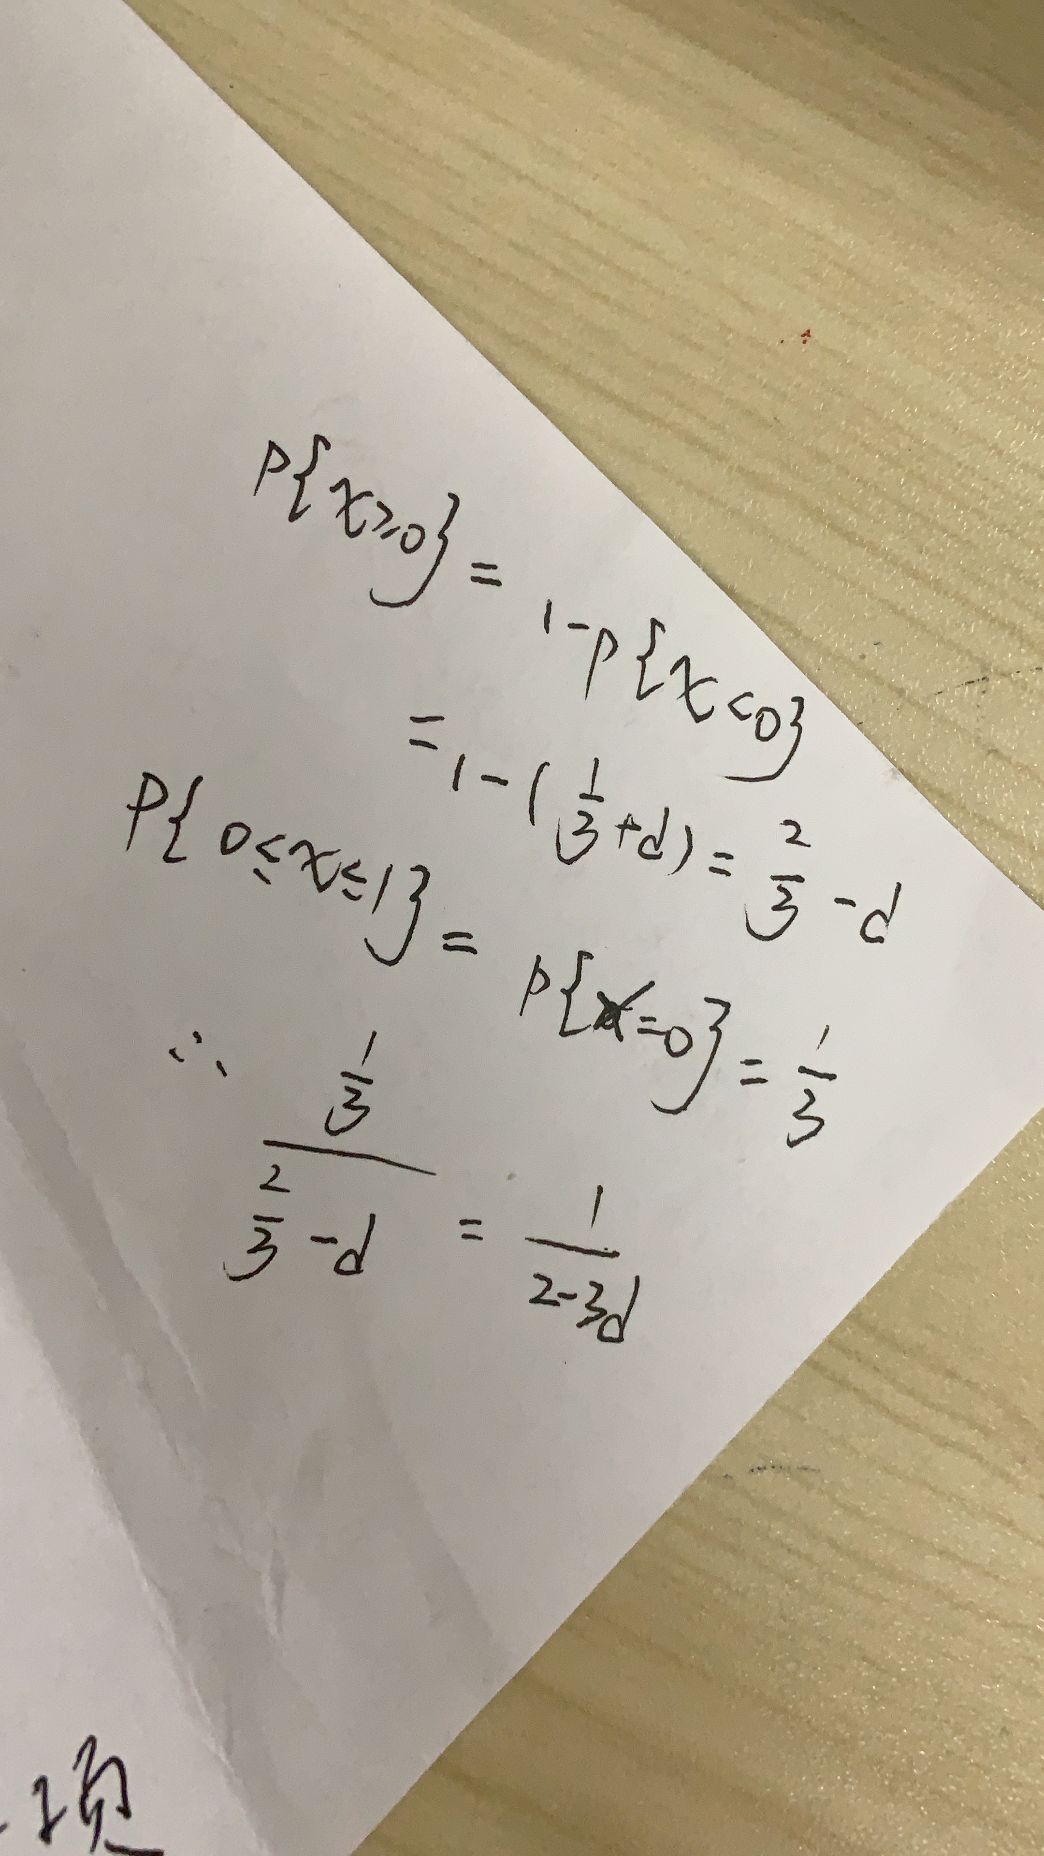 P{x≥0} = 1-P{x<0}
= 1-(1/3+d) = 2/3-d
P{0≤x≤1} = P{x=0} = 1/3
∴ (1/3)/(2/3-d) = 1/(2-3d)
项